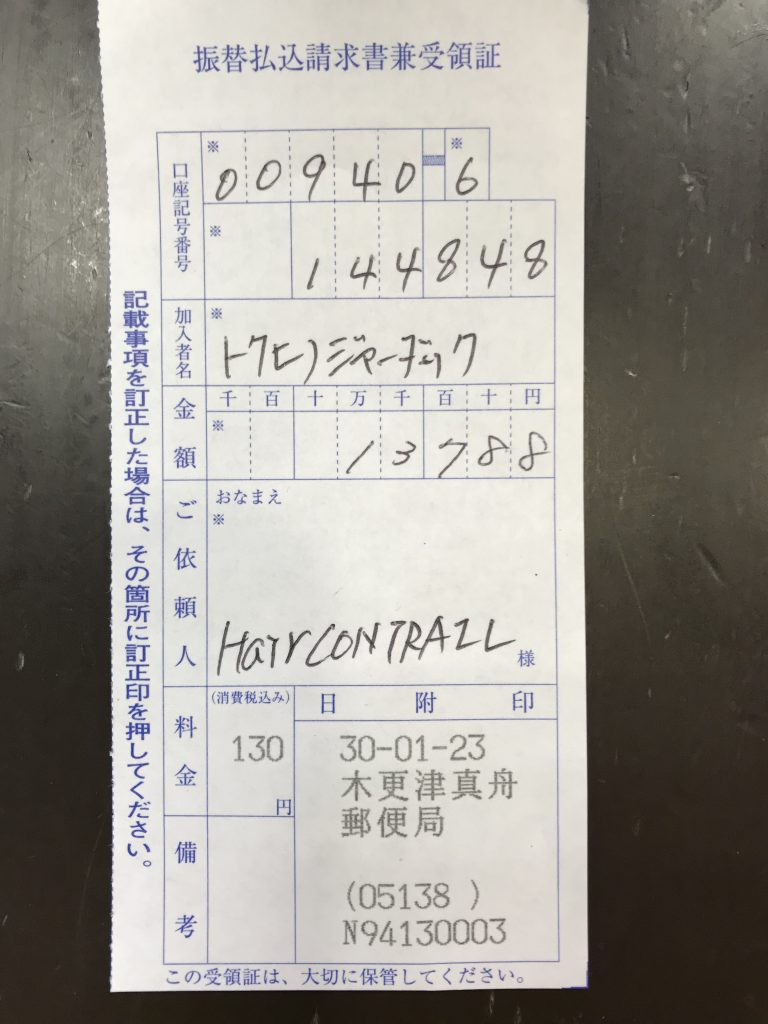 振替払込請求書兼受領証
口座記号番号
※ 00940-6
※ 144848
加入者名
※
トクヒ)ジャーディック
金額
千 百 十 万 千 百 十 円
※ 13788
ご依頼人
おなまえ
※
Hair CONTRAIL 様
料金
(消費税込み)
130
円
日 附 印
30-01-23
木更津真舟
郵便局
(05138 )
N94130003
備考
この受領証は、大切に保管してください。
記載事項を訂正した場合は、その箇所に訂正印を押してください。